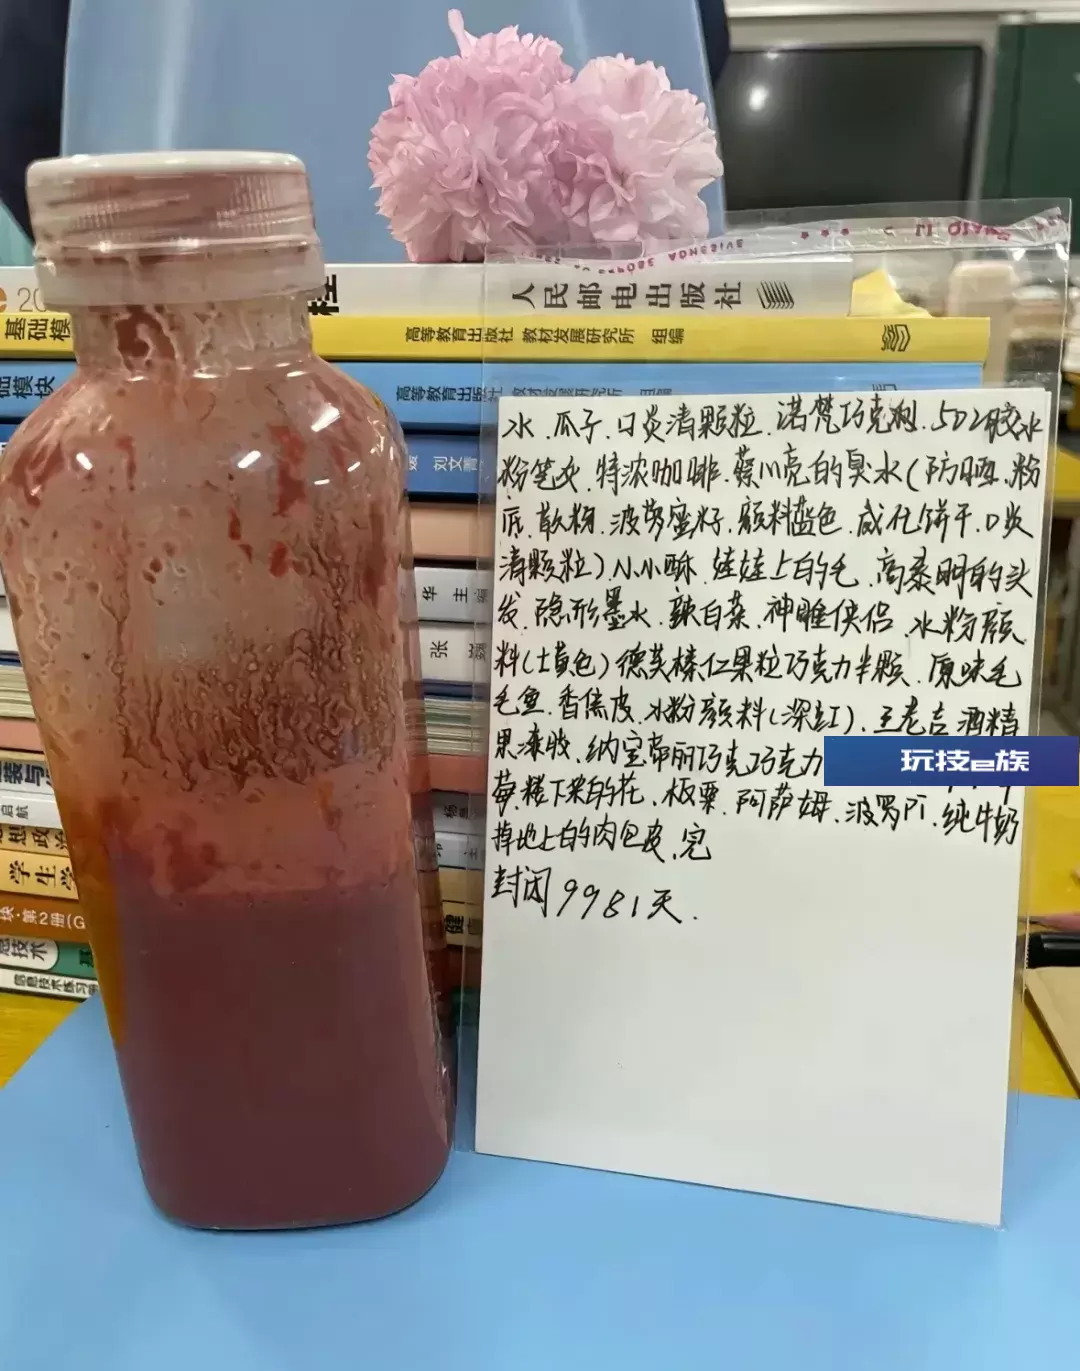 人民邮电出版社
基础模
高等教育出版社 教材发展研究所 组编
础模块
高等教育出版社
刘文菁
华 主 编
张 巍
装与
启航
思想政治
学生学
块·第2册(G
息技术
信息技术练习册
健
水、瓜子、口炎清颗粒、诺梵巧克力、502胶水
粉笔灰、特浓咖啡、蔡川亮的臭水(防晒、粉
底、散粉、波萝蜜籽、颜料蓝色、威化饼干、口炎
清颗粒)小小酥、娃娃上的毛、高泰明的头
发、隐形墨水、辣白菜、神雕侠侣、水粉颜
料(土黄色)德芙榛仁果粒巧克力半颗、原味毛
毛鱼、香焦皮、水粉颜料(深红)、王老吉酒精
果漆妆、纳宝帝丽巧克巧克力
莓、搂下来的花、板栗、阿萨姆、波罗户、纯牛奶
掉地上的肉包皮、完
封闭9981天.
玩技e族